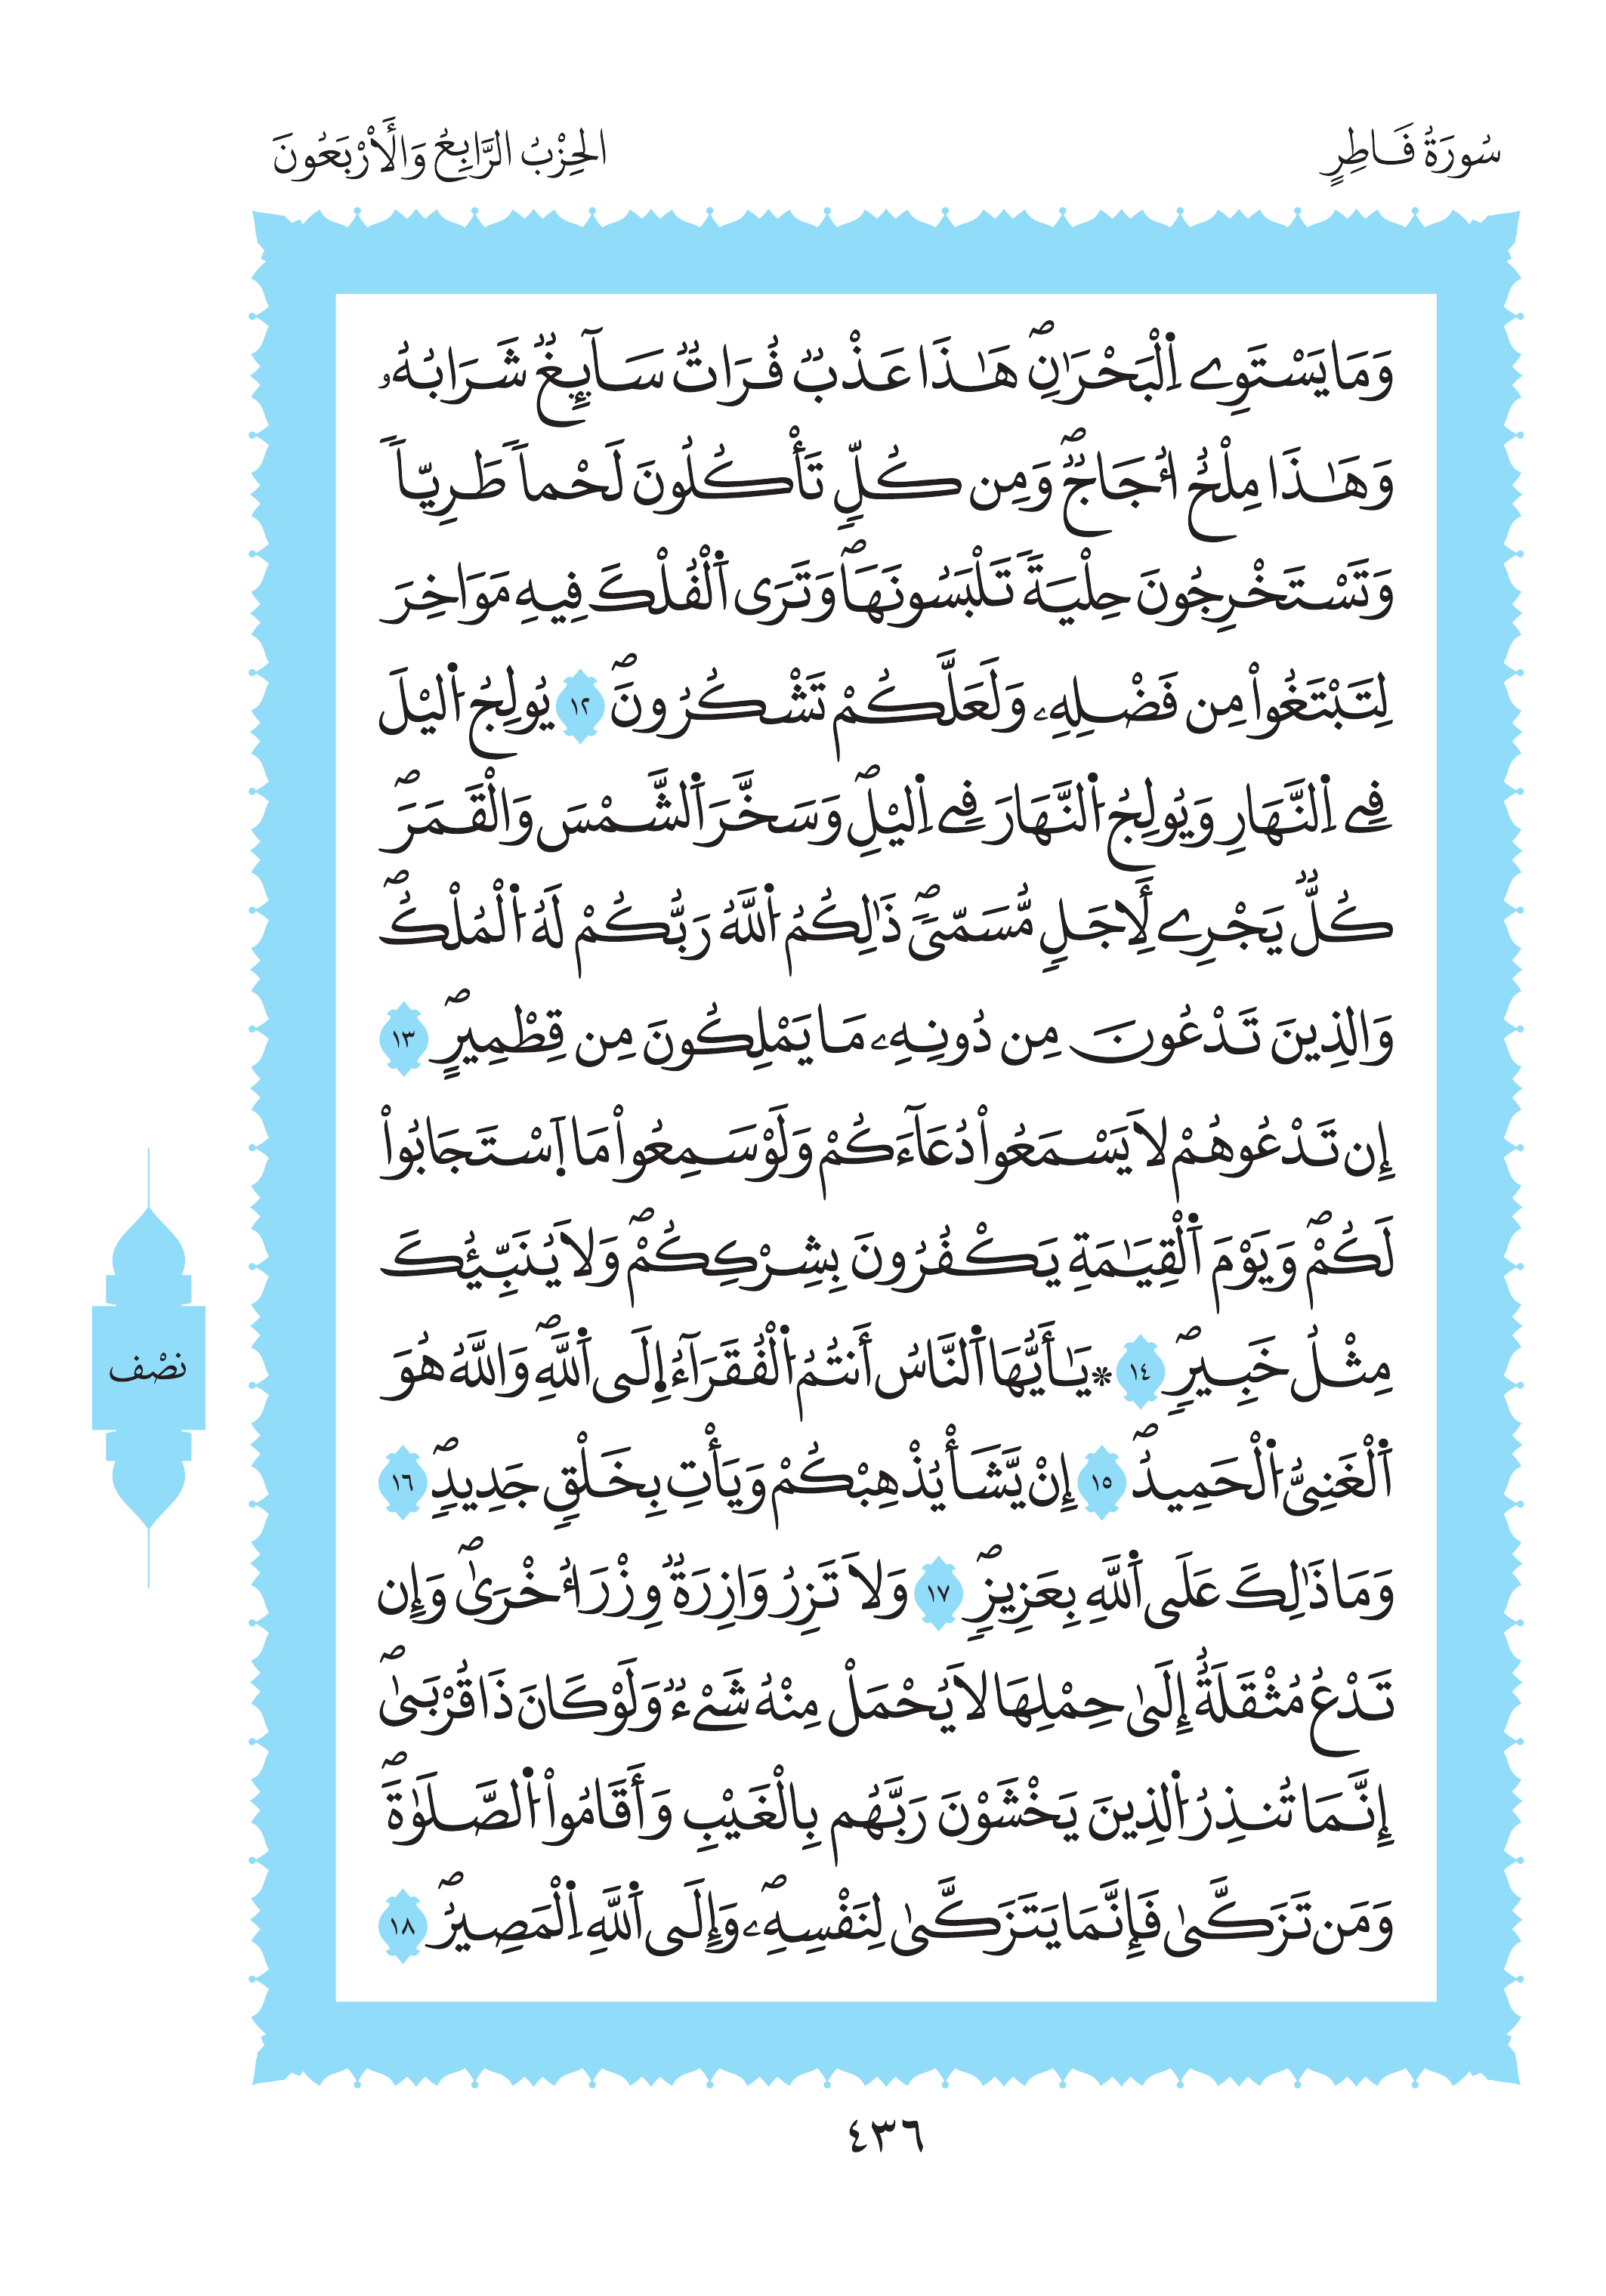 سُورَةُ فَاطِرٍ
الحِزْبُ الرَّابِعُ وَالَأَرْبَعُونَ
وَمَا يَسْتَوِے اِ۬لْبَحْرَٰنِۖ هَـٰذَا عَذْبٞ فُرَاتٞ سَآئِغٞ شَرَابُهُۥ
وَهَـٰذَا مِلْحٌ ا۟جَاجٞۖ وَمِن كُلّٖ تَأْكُلُونَ لَحْماٗ طَرِيّاٗ
وَتَسْتَخْرِجُونَ حِلْيَةٗ تَلْبَسُونَهَاۖ وَتَرَى اَ۬لْفُلْكَ فِيهِ مَوَاخِرَ
لِتَبْتَغُواْ مِن فَضْلِهِۦ وَلَعَلَّكُمْ تَشْكُرُونَۖ ١٢ يُولِجُ اُ۬ليْلَ
فِے اِ۬لنَّهَارِ وَيُولِجُ اُ۬لنَّهَارَ فِے اِ۬ليْلِۖ وَسَخَّرَ اَ۬لشَّمْسَ وَالْقَمَرَۖ
كُلّٞ يَجْرِے لِأَجَلٖ مُّسَمّيٗۖ ذَٰلِكُمُ اُ۬للَّهُ رَبُّكُمْ لَهُ اُ۬لْمُلْكُۖ
وَالذِينَ تَدْعُونَ مِن دُونِهِۦ مَا يَمْلِكُونَ مِن قِطْمِيرٍۖ ١٣
إِن تَدْعُوهُمْ لَا يَسْمَعُواْ دُعَآءَكُمْ وَلَوْ سَمِعُواْ مَا اَ۪سْتَجَابُواْ
لَكُمْۖ وَيَوْمَ اَ۬لْقِيَٰمَةِ يَكْفُرُونَ بِشِرْكِكُمْۖ وَلَا يُنَبِّئُكَ
مِثْلُ خَبِيرٖۖ ١٤ ۞يَٰأَيُّهَا اَ۬لنَّاسُ أَنتُمُ اُ۬لْفُقَرَآءُ اِ۪لَى اَ۬للَّهِۖ وَاللَّهُ هُوَ
اَ۬لْغَنِيُّ اُ۬لْحَمِيدُۖ ١٥ إِنْ يَّشَأْ يُذْهِبْكُمْ وَيَأْتِ بِخَلْقٖ جَدِيدٖۖ ١٦
وَمَا ذَٰلِكَ عَلَى اَ۬للَّهِ بِعَزِيزٖۖ ١٧ وَلَا تَزِرُ وَازِرَةٞ وِزْرَ أُخْر۪يٰۖ وَإِن
تَدْعُ مُثْقَلَةٌ إِلَىٰ حِمْلِهَا لَا يُحْمَلْ مِنْهُ شَےْءٞ وَلَوْ كَانَ ذَا قُرْبَىٰۖ
إِنَّمَا تُنذِرُ اُ۬لذِينَ يَخْشَوْنَ رَبَّهُم بِالْغَيْبِ وَأَقَامُواْ اُ۬لصَّلَوٰةَۖ
وَمَن تَزَكَّىٰ فَإِنَّمَا يَتَزَكَّىٰ لِنَفْسِهِۦۖ وَإِلَى اَ۬للَّهِ اِ۬لْمَصِيرُۖ ١٨
نصْف
٤٣٦